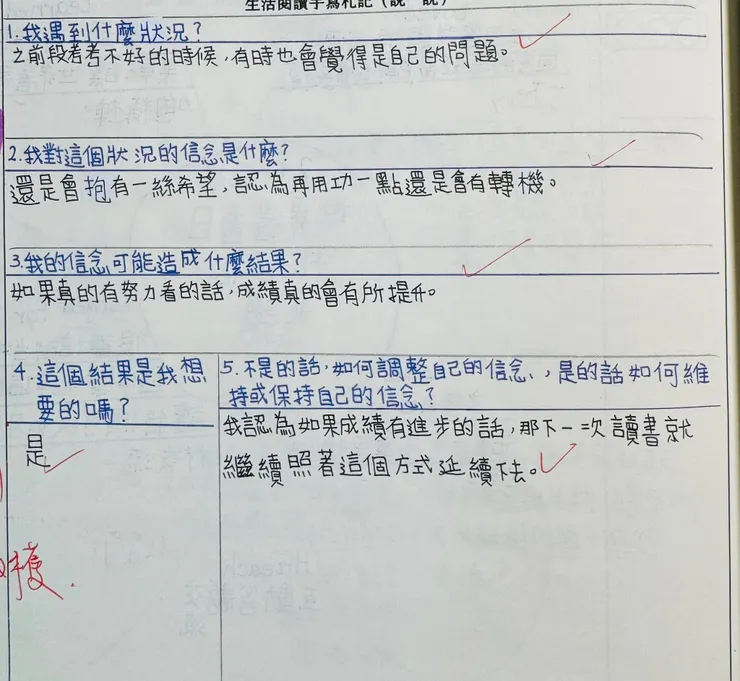 生活閱讀手寫札記（說一說）
1.我遇到什麼狀況？
之前段考考不好的時候，有時也會覺得是自己的問題。
2.我對這個狀況的信念是什麼？
還是會抱有一絲希望，認為再用功一點還是會有轉機。
3.我的信念可能造成什麼結果？
如果真的有努力看的話，成績真的會有所提升。
4.這個結果是我想
要的嗎？
是
5.不是的話，如何調整自己的信念、，是的話如何維
持或保持自己的信念？
我認為如果成績有進步的話，那下一次讀書就
繼續照著這個方式延續下去。